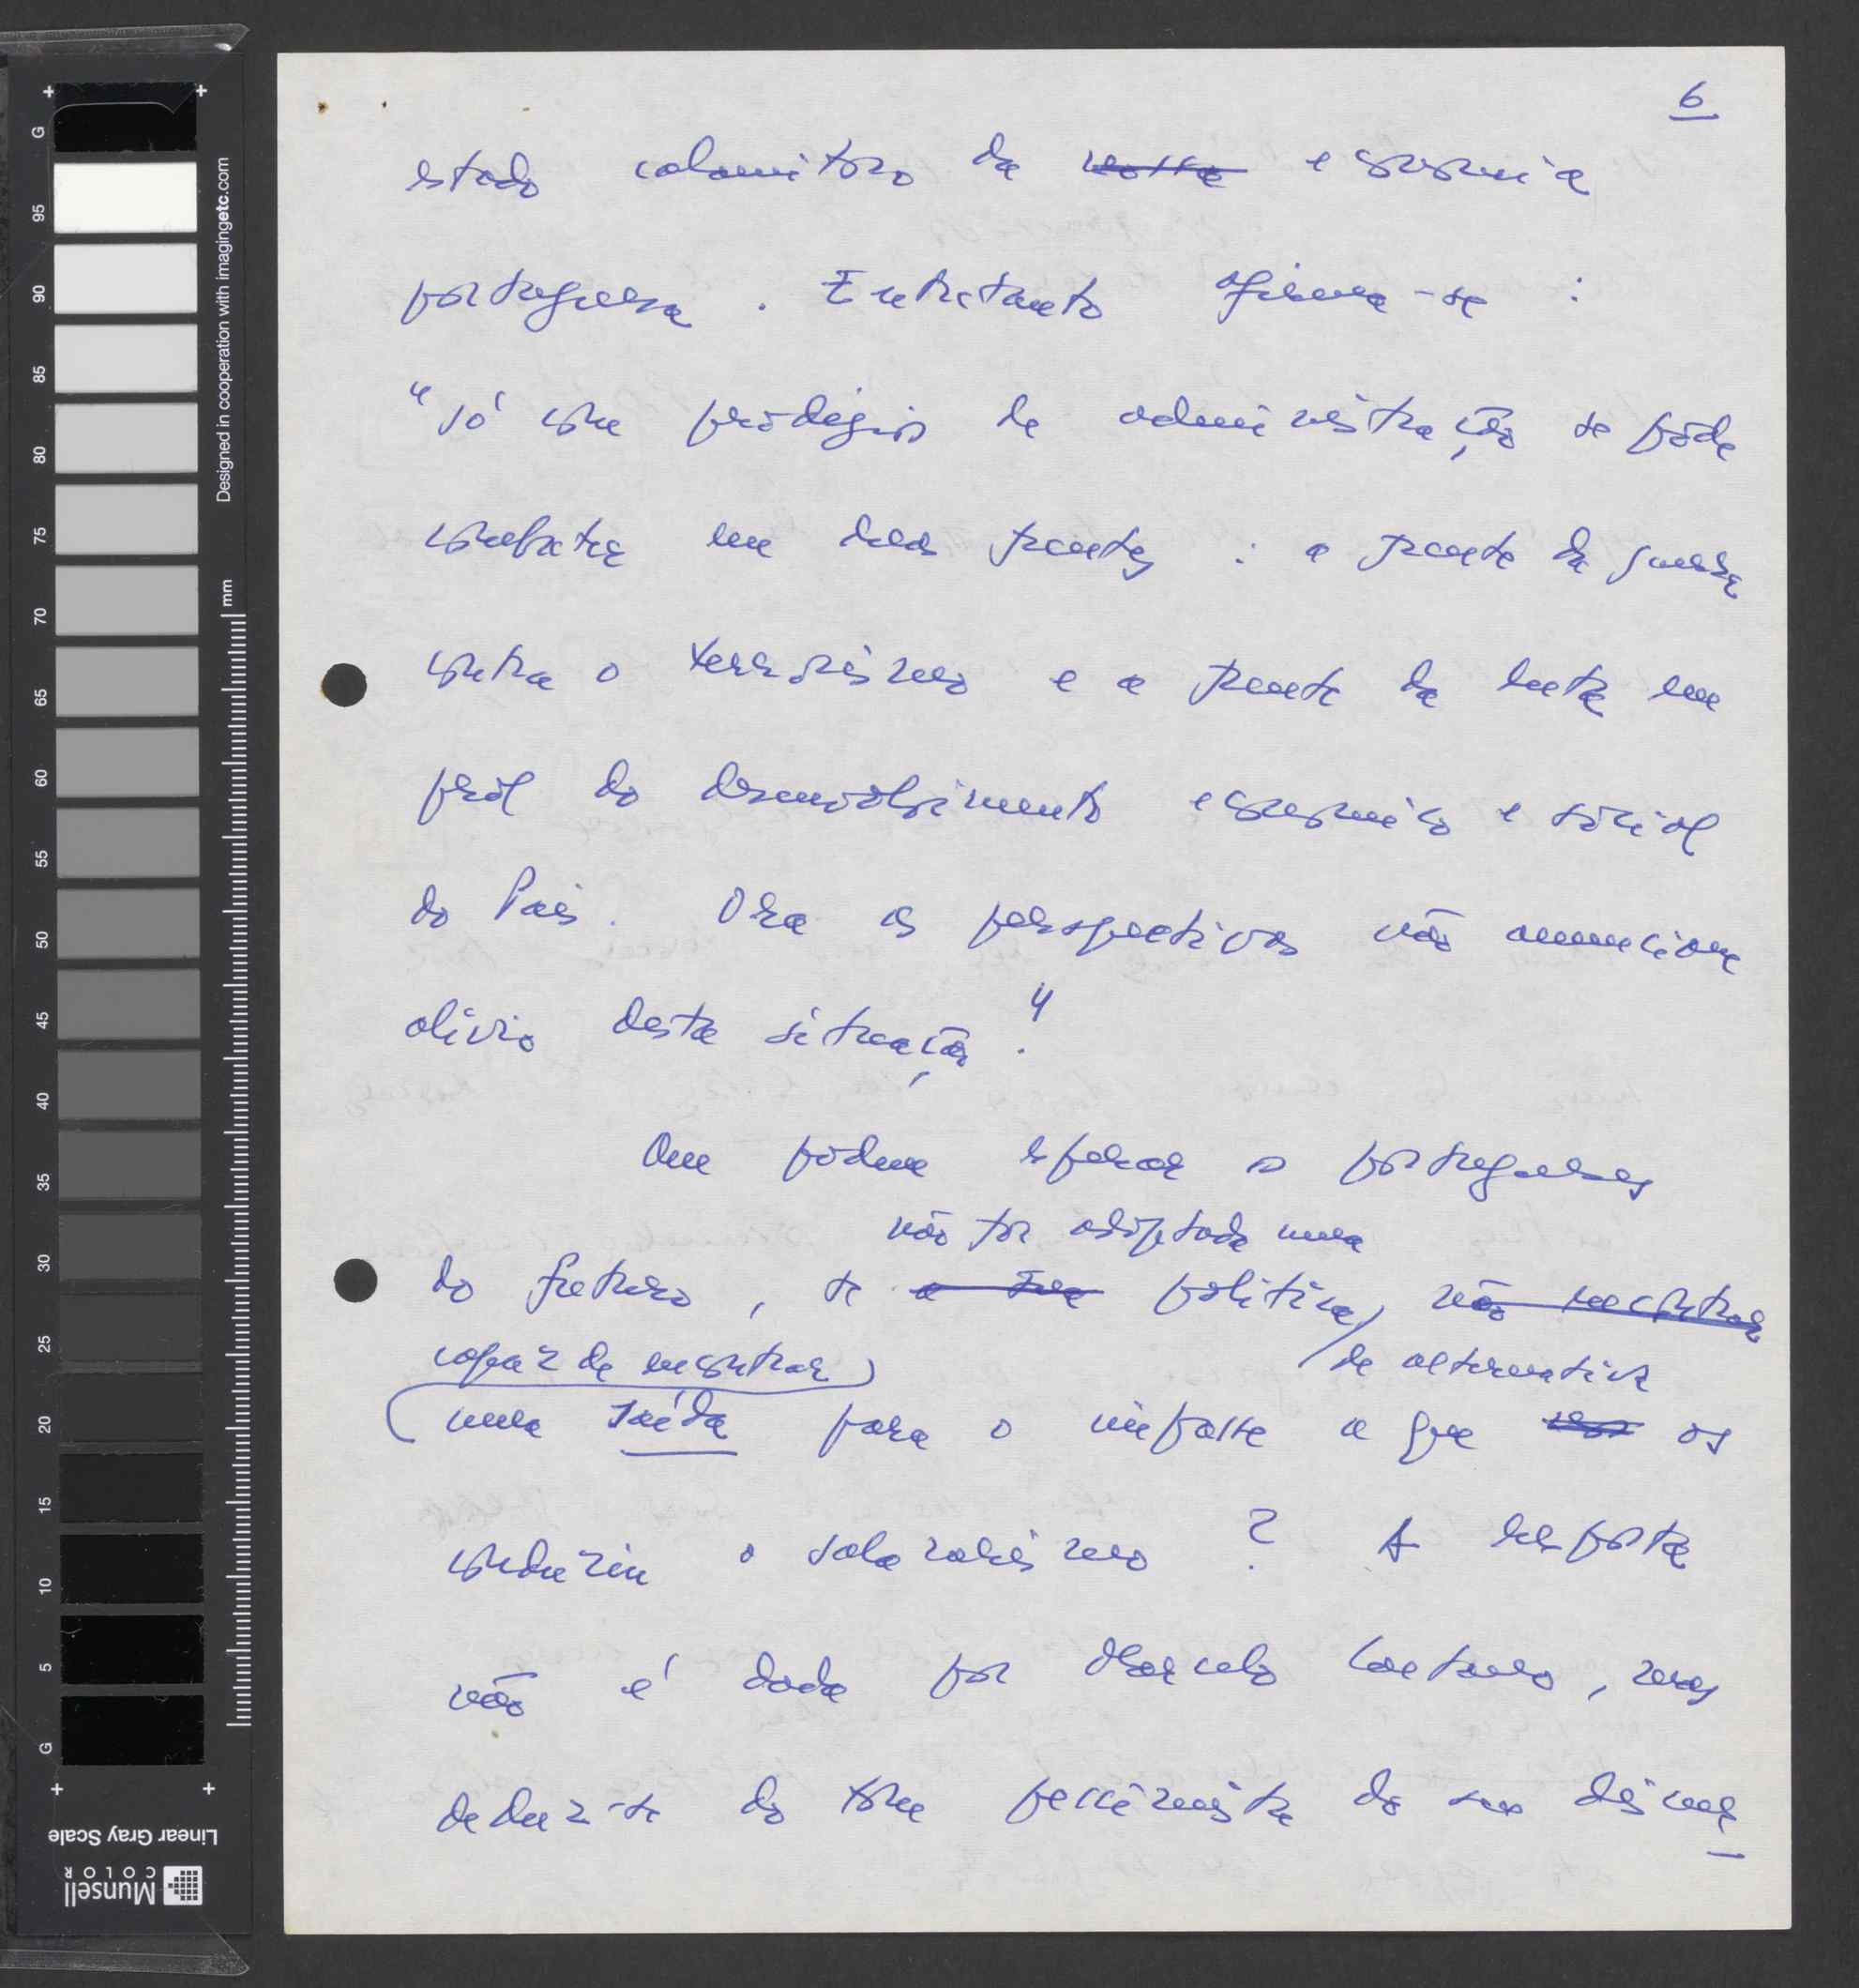 6
estado calamitoso da nossa economia
portuguesa. Entretanto afirma-se :
"só com prodígios de administração se pôde
combater em duas frentes : a frente da guerra
contra o terrorismo e a frente da luta em
pról do desenvolvimento economico e social
do País. Ora as perspectivas não anunciam
alívio desta situação."
Que podem esperar os portugueses
não for adoptada uma
do futuro, se a sua política, não encontrar
capaz de encontrar
de alternativa
uma saída para o impasse a que nos os
conduziu o salazarismo ? A resposta
não é dada por Marcelo Caetano, mas
deduz-se do tom pessimista do seu discur
Designed in cooperation with imagingetc.com
mm
G
95
90
85
80
75
70
65
60
55
50
45
40
35
30
25
20
15
10
5
G
Linear Gray Scale
Munsell
COLOR